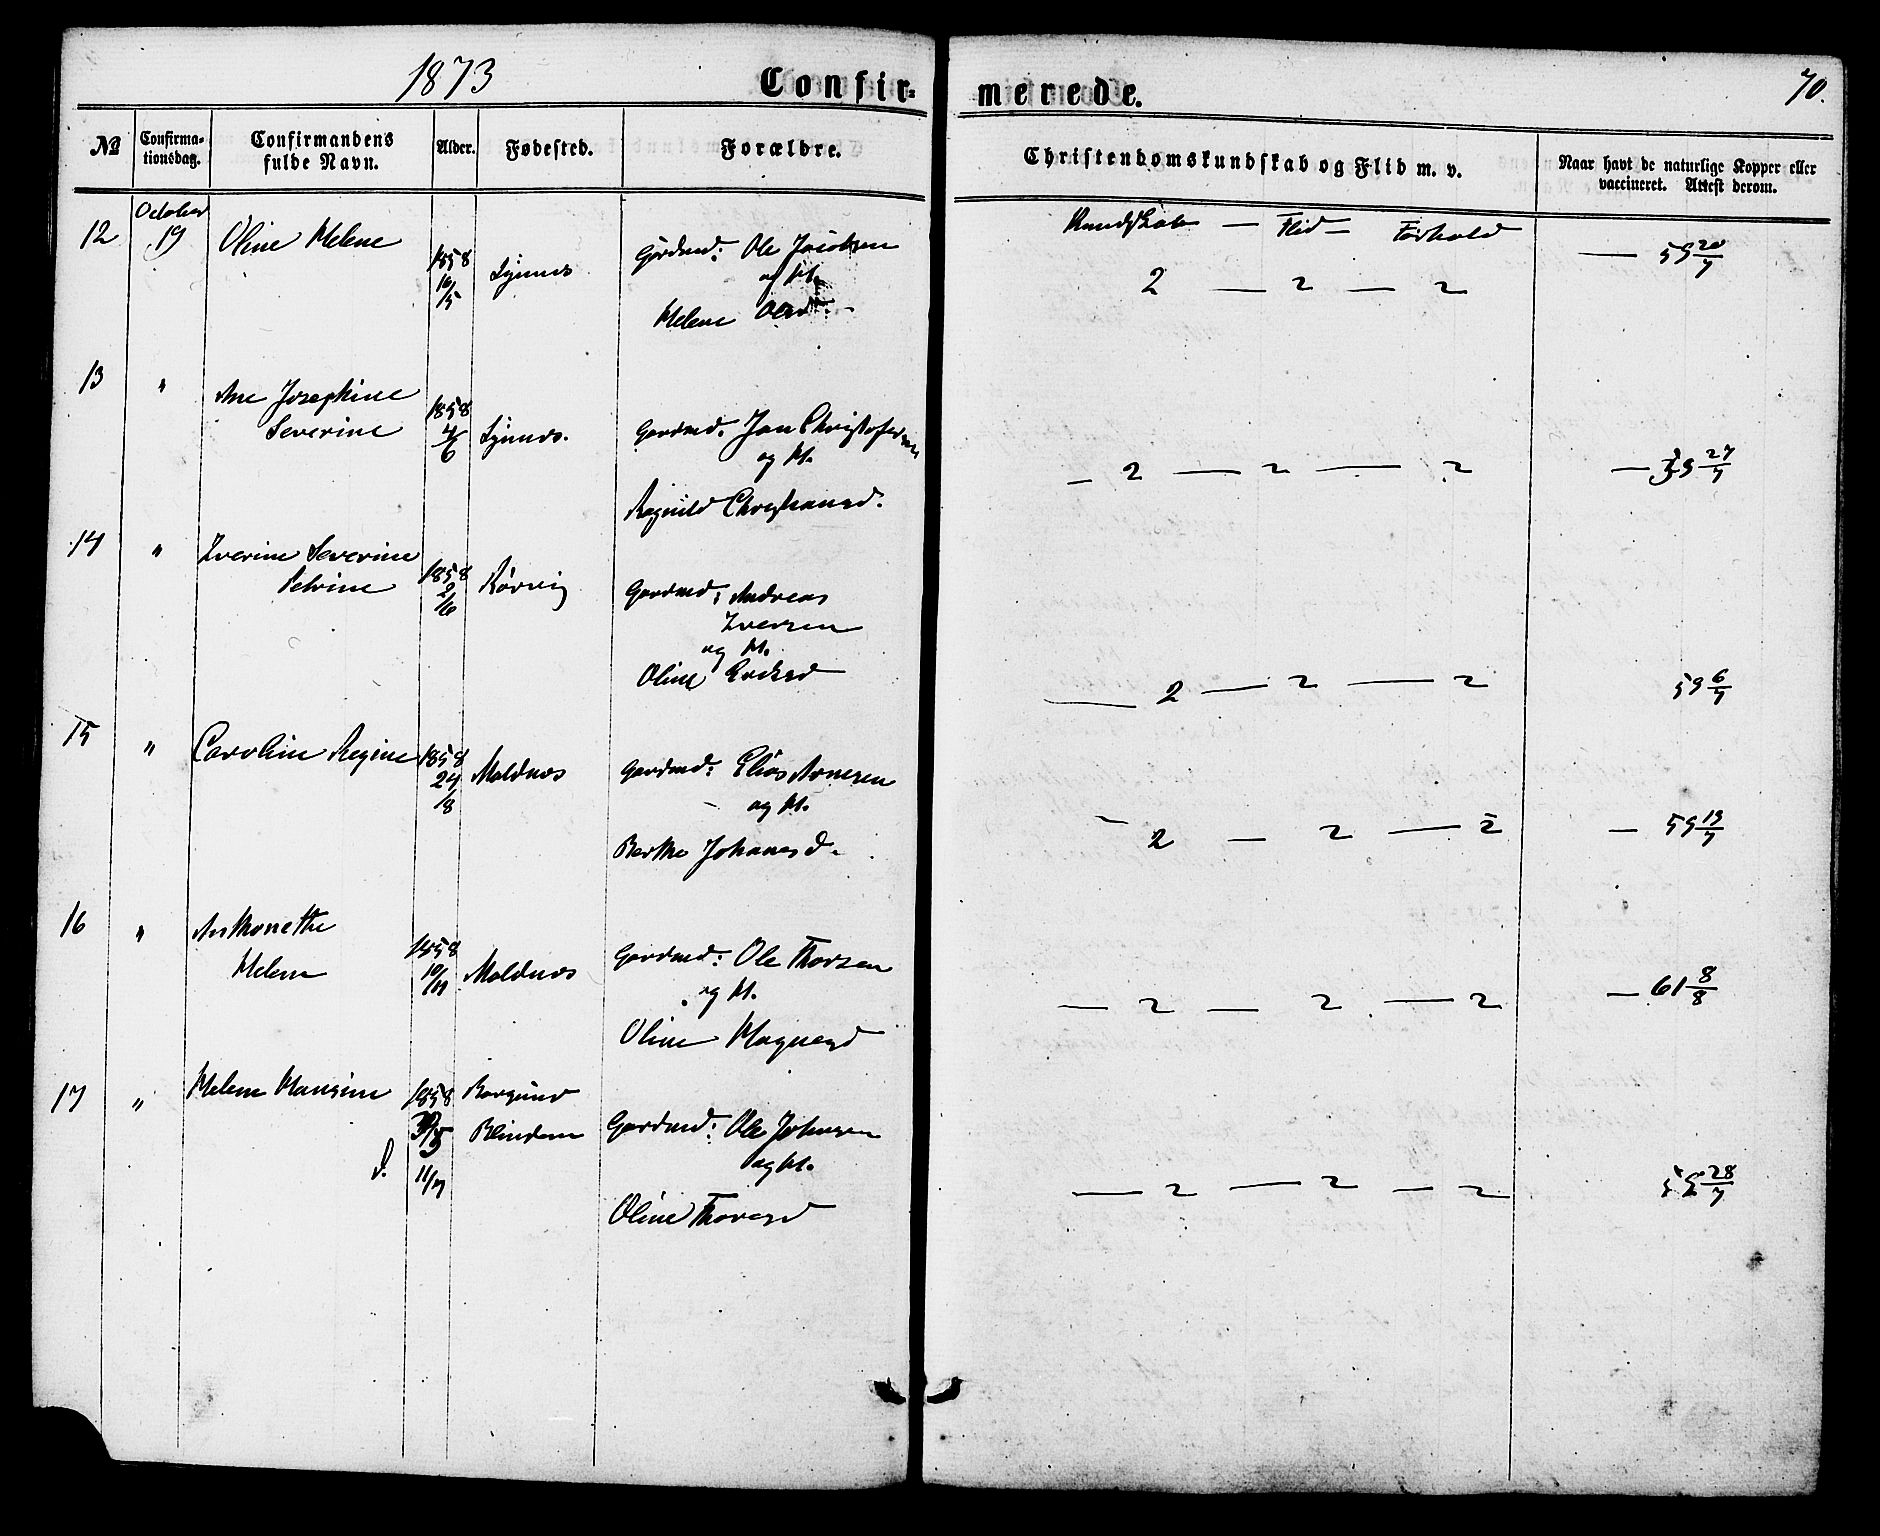 1873
Confirmerede.
70.
№ Confirmationsdag. Confirmandens fulde Navn. Alder. Fødested. Forældre. Christendomskundskab og Flid m. v. Naar havt de naturlige Kopper eller vaccineret. Attest derom.
October
Kundskab — Flid — Forhold
12 19 Oline Helene 1858 Gaardmd: Ole Jacobsen — 59 20/7
16/5 og H. 2 — 2 — 2
Helene Olsd.
13 " Ane Josephine 1858
Severine 4/6 Gaardmd. Jon Christofersen
og H. — 2 — 2 — 2 — 59 27/7
Ragnild Christiansd.
14 " Iverine Severine 1858 Rørvig
Petrine 2/6 Gaardmd; Andreas
Iversen
og H.
Oline — 2 — 2 — 2 59 6/7
15 " Caroline Regine 1858 Moldnes Gaardmd: Elias Arnesen
24/8 og H.
Berthe Johannesd. 2 — 2 — 2 — 59 13/7
16 " Anthonette 1858 Gaardmd: Ole Thorsen
Helene 10/11 Moldnes og H. — 2 — 2 — 2 — 61 8/8
Oline Magnesd
17 " Helene Hansine 1858 Borgund
Blindem Gaardmd: Ole Johnsen
D. 11/7 og H.
Oline Thoresd — 2 — 2 — 2 28/7